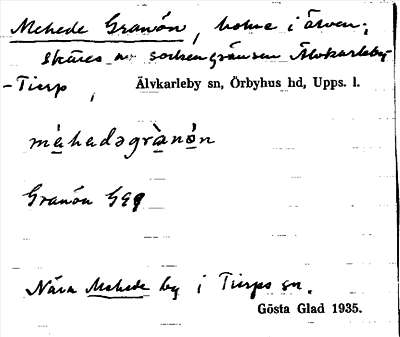 Mehede Granön, holme i älven;
skäres av sockengränsen Älvkarleby
-Tierp, Älvkarleby sn, Örbyhus hd, Upps. l.
mèhadəgrànȯ̀n
Granön GEQ
Nära Mehede by i Tierps sn.
Gösta Glad 1935.